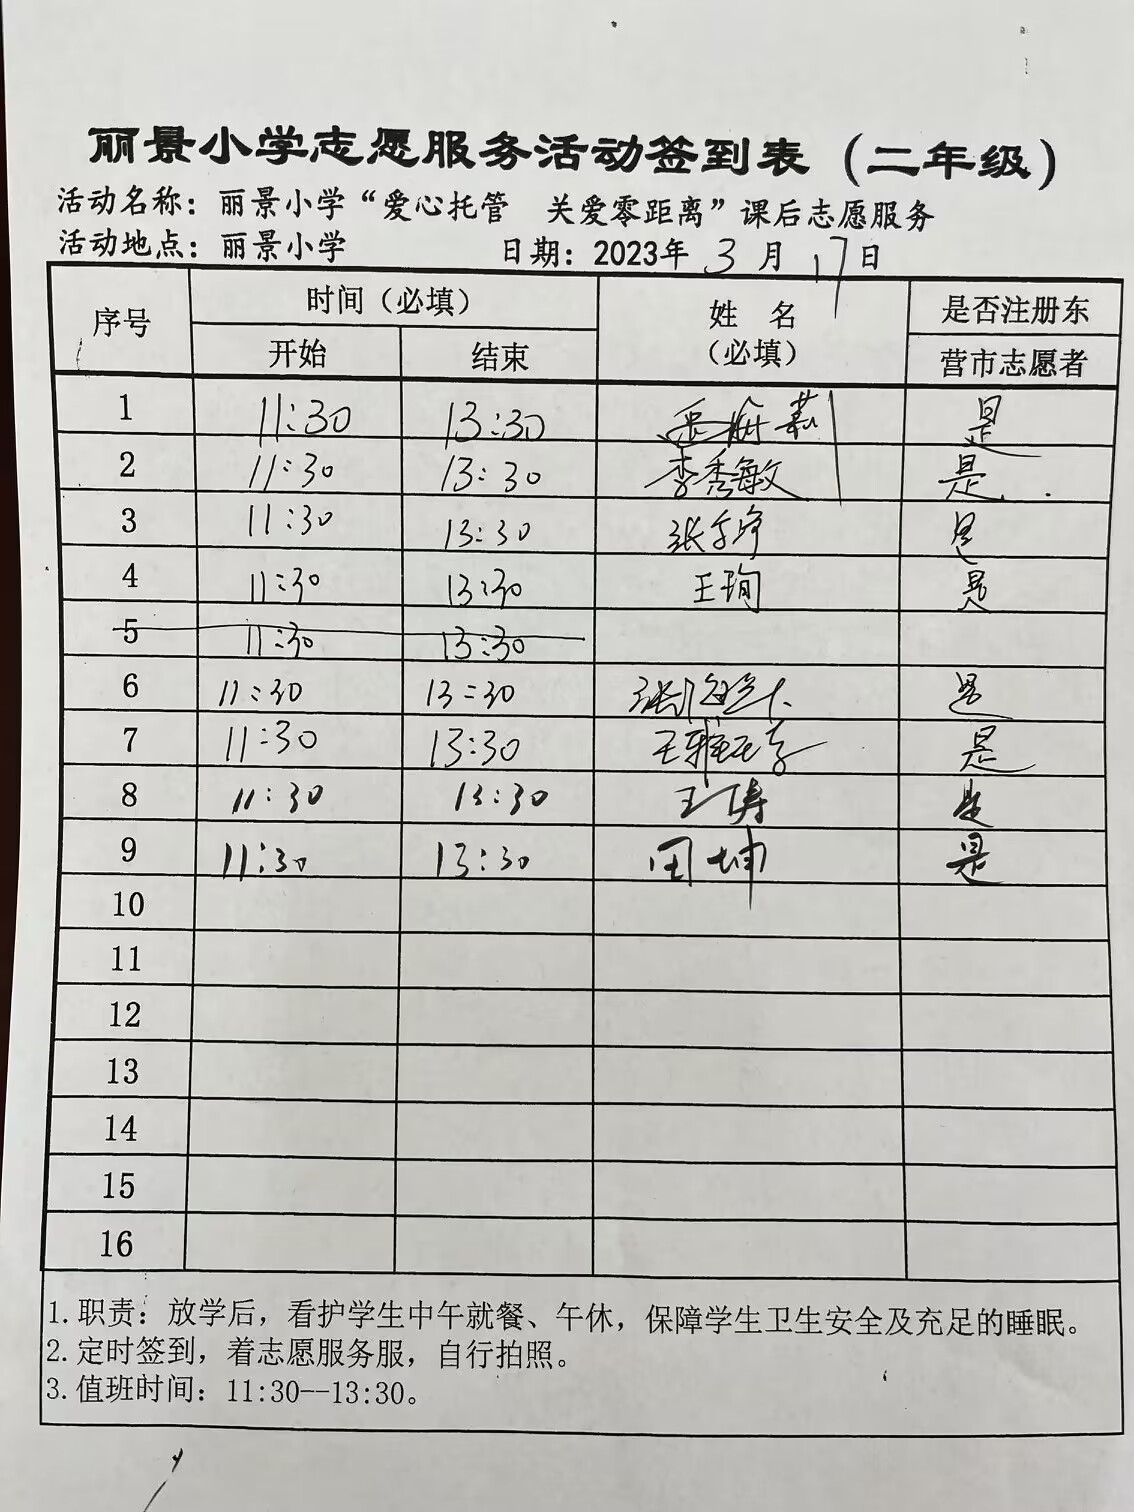 丽景小学志愿服务活动签到表（二年级）
活动名称：丽景小学“爱心托管 关爱零距离”课后志愿服务
活动地点：丽景小学 日期：2023年 3 月 17 日
序号 时间（必填） 姓 名（必填） 是否注册东营市志愿者
开始 结束
1 11:30 13:30 是
2 11:30 13:30 李秀敏 是
3 11:30 13:30 是
4 11:30 13:30 王珣 是
5 11:30 13:30
6 11:30 13:30 是
7 11:30 13:30 是
8 11:30 13:30 王涛 是
9 11:30 13:30 田坤 是
10
11
12
13
14
15
16
1.职责：放学后，看护学生中午就餐、午休，保障学生卫生安全及充足的睡眠。
2.定时签到，着志愿服务服，自行拍照。
3.值班时间：11:30--13:30。